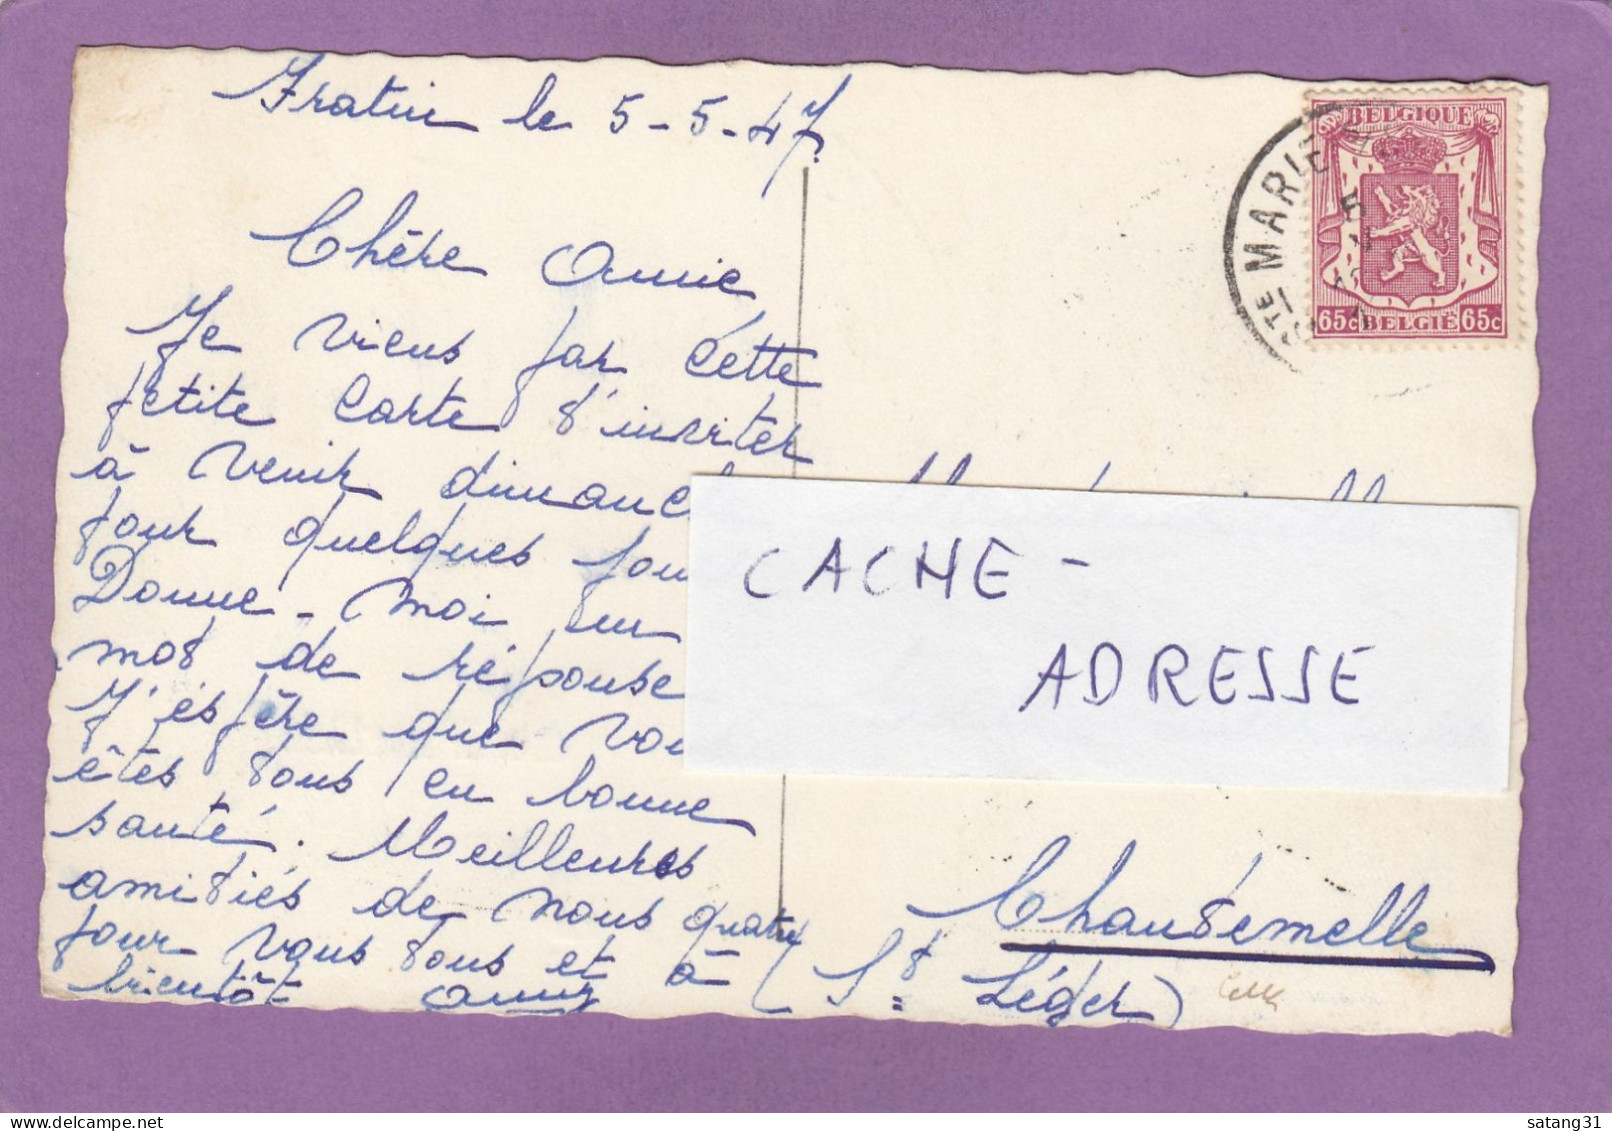 Fratin le 5-5-47.
Chère Amie
Je viens par cette
petite carte t'inviter
à venir dimanc
pour quelques jou
Donne-moi un
mot de réponse
J'espère que vou
êtes tous en bonne
santé. Meilleures
amitiés de nous quatre
pour vous tous et à
bientôt
BELGIQUE
65c BELGIË 65c
STE MARIE
CACHE-
ADRESSE
Chantemelle
(St Léger)
satang31